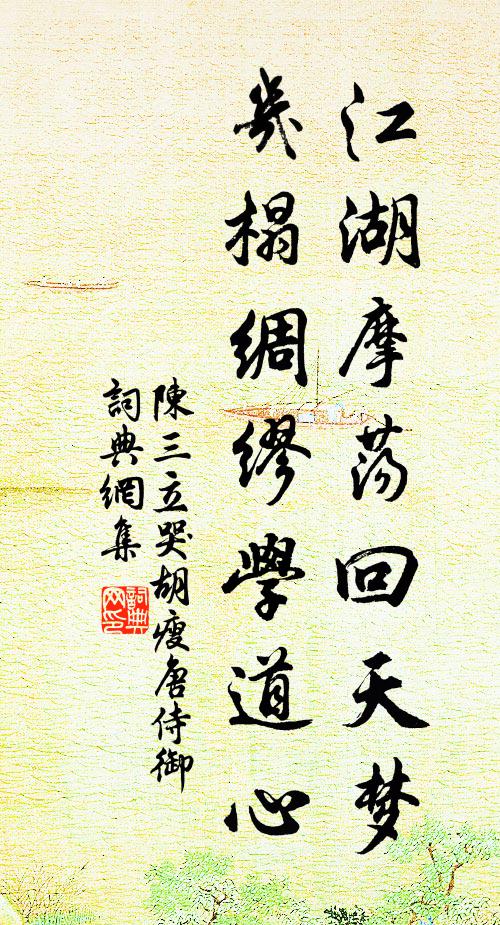 江湖摩荡回天梦
几榻綢繆學道心
陳三立哭胡瘦唐侍御
詞典網集
詞典网印